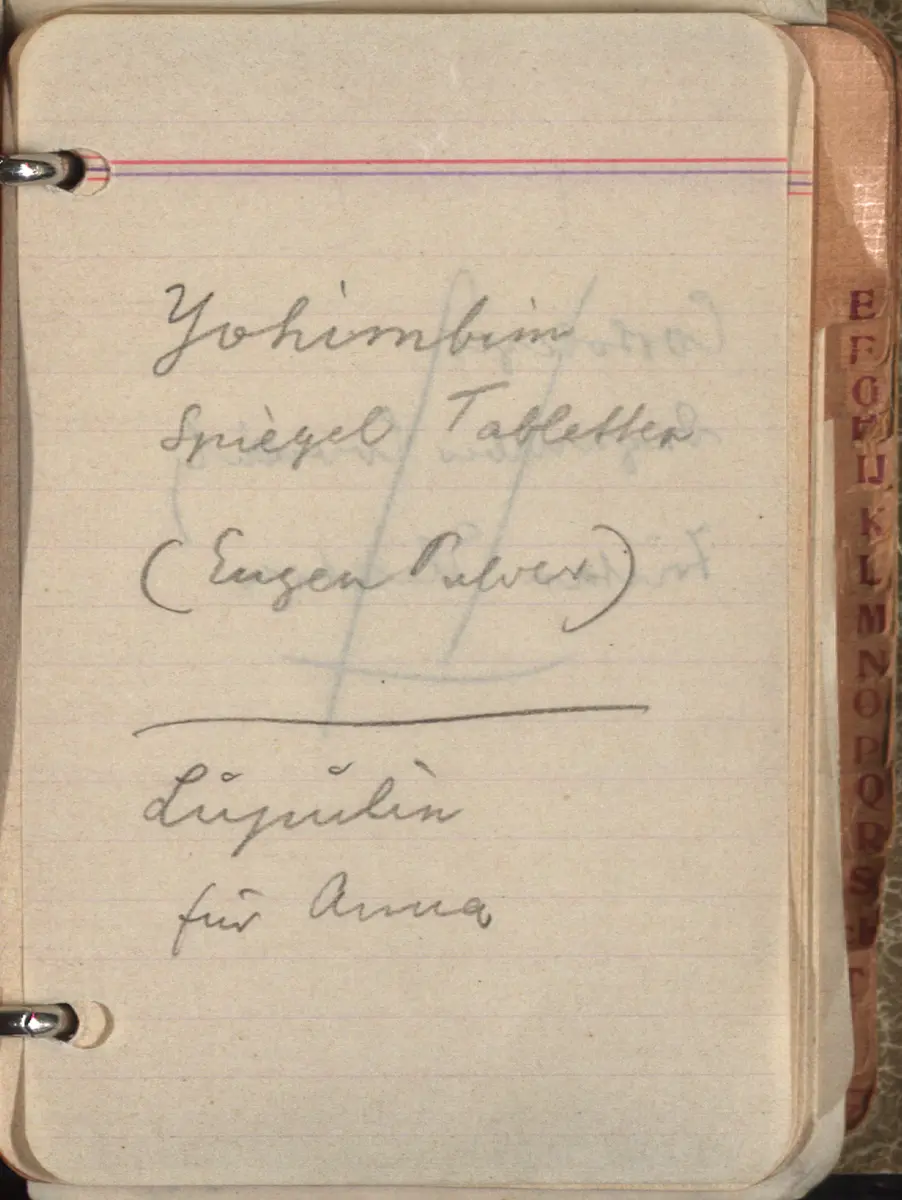 Yohimbim
Spiegel Tabletten
(Eugen Pulver)
Lupulin
für Anna
E
F
G
H
IJ
K
L
M
N
O
P
Q
R
S